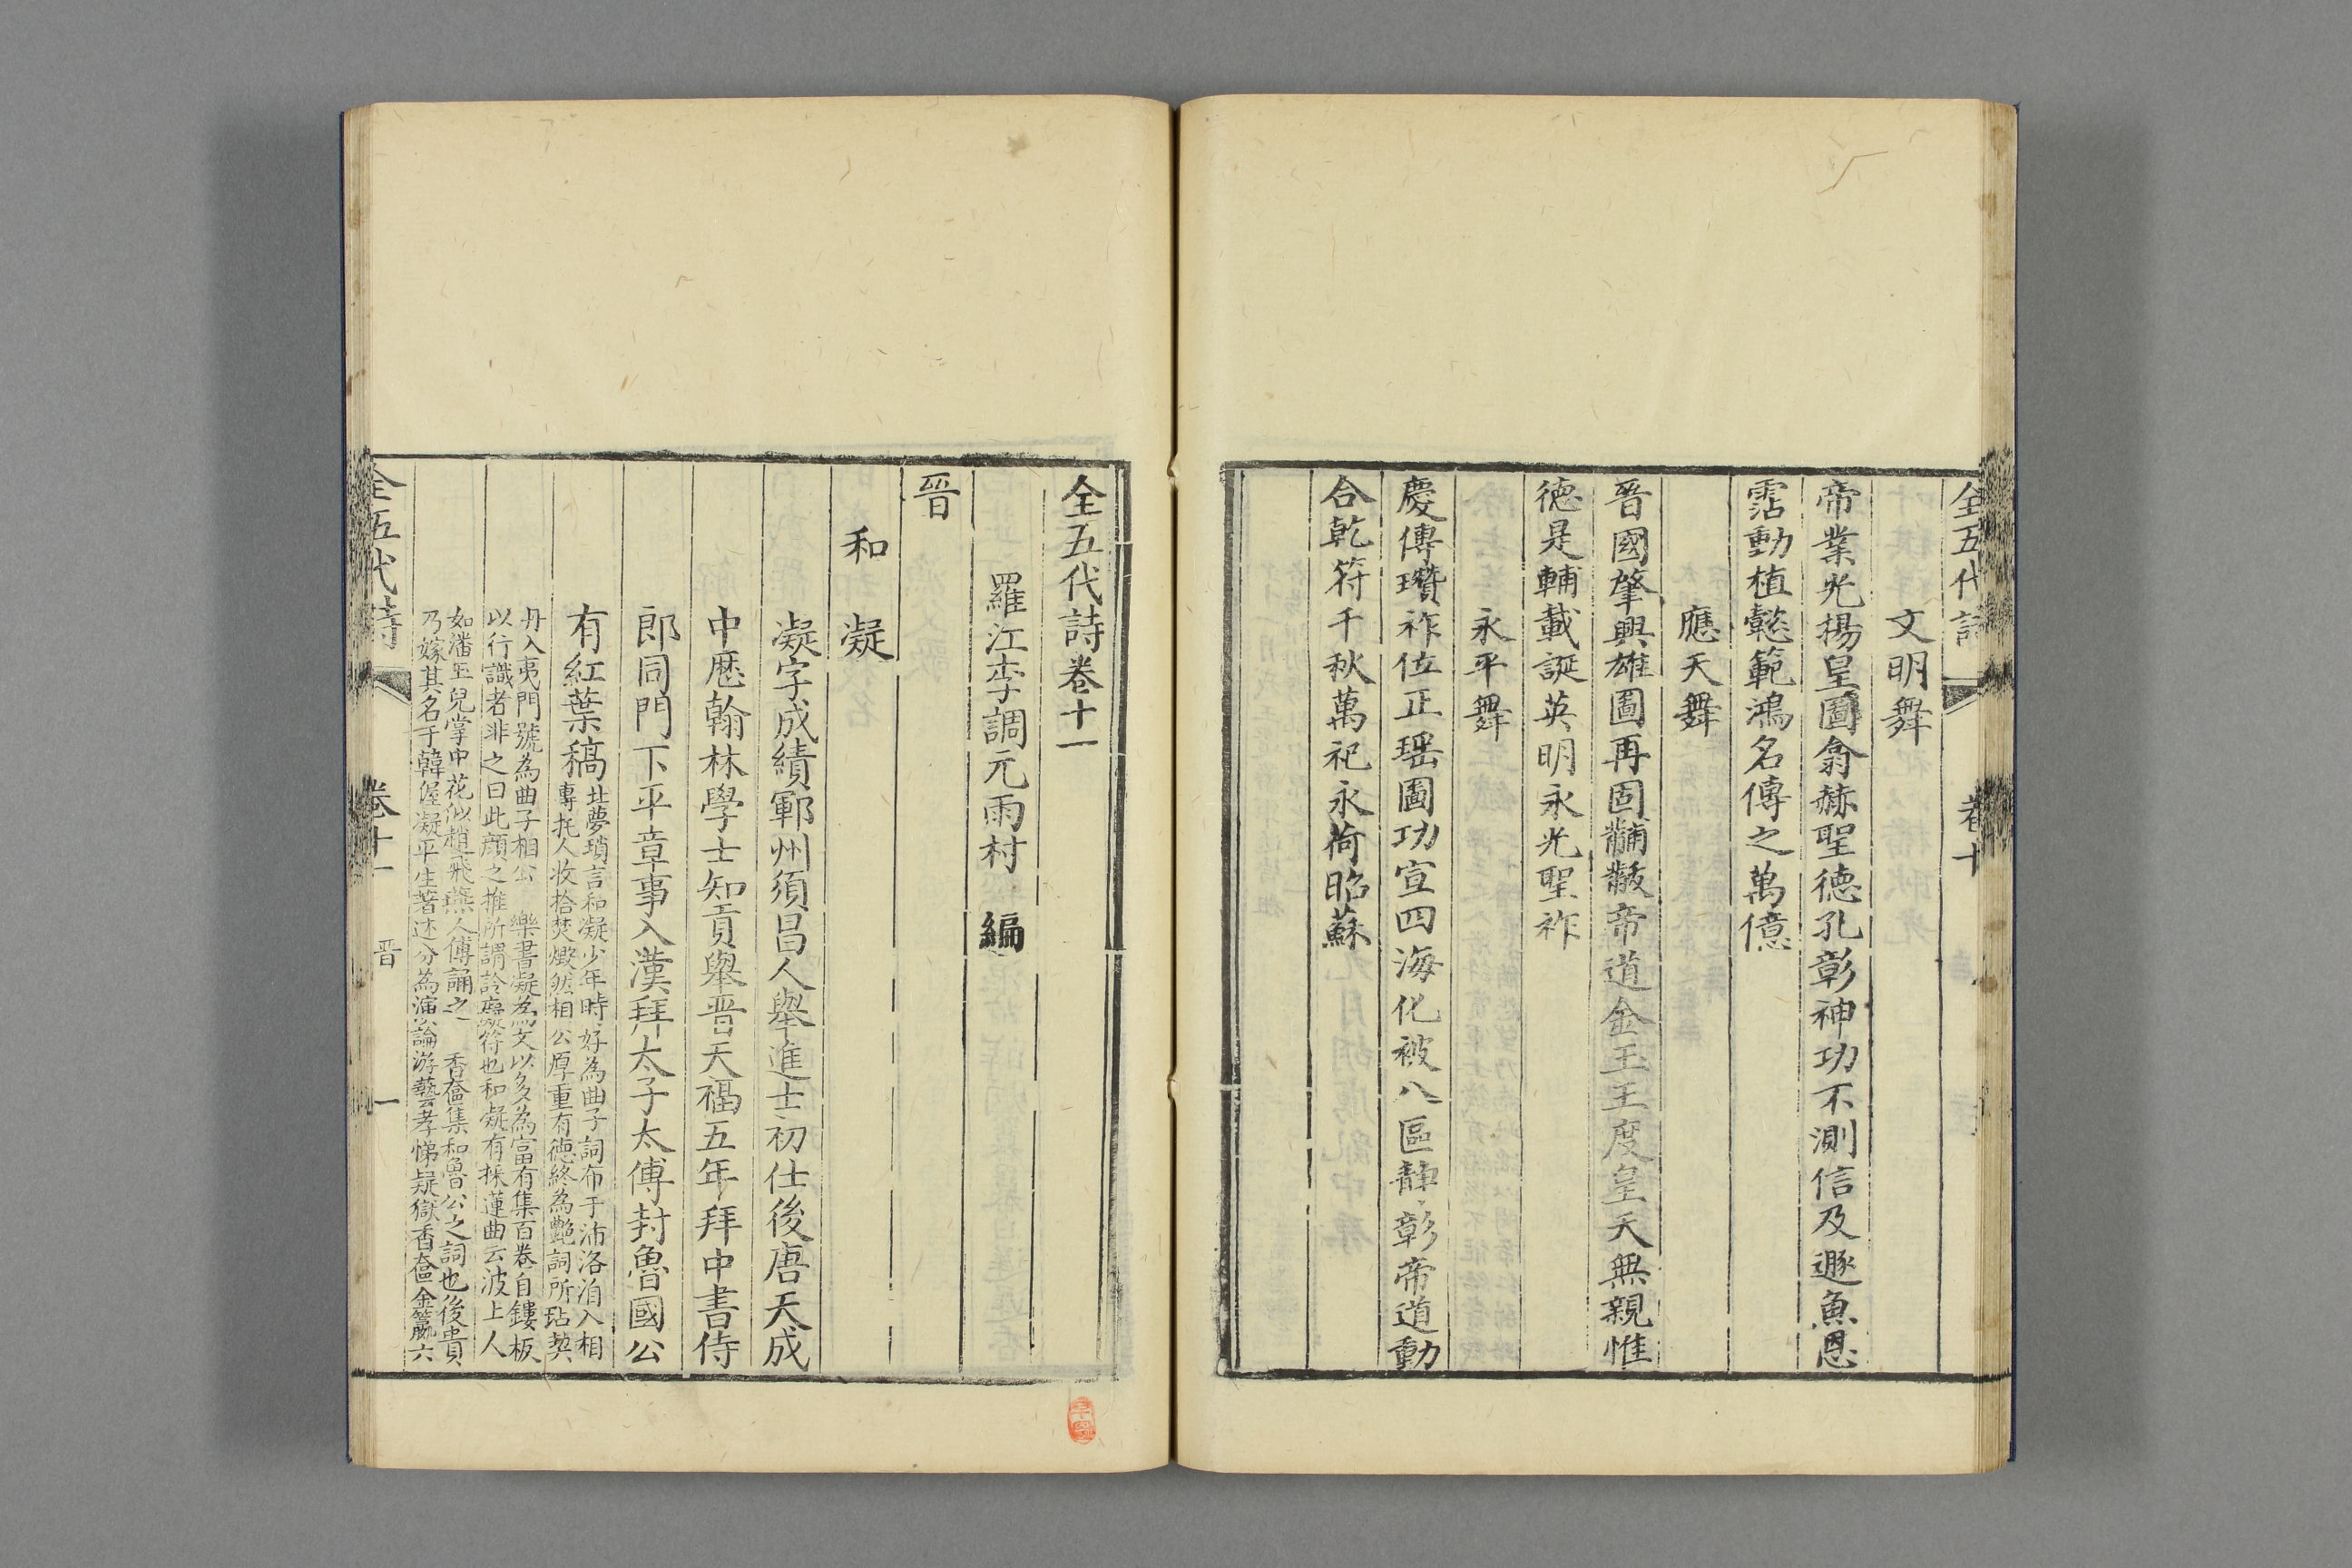 全五代詩
卷十
文明舞
帝業光揚皇圖翕赫聖德孔彰神功不測信及遯魚恩
霑動植懿範鴻名傳之萬億
應天舞
晉國肇興雄圖再固黼黻帝道金玉王度皇天無親惟
德是輔載誕英明永光聖祚
永平舞
慶傳瓚祚位正瑶圖功宣四海化被八區靜彰帝道動
合乾符千秋萬祀永荷昭蘇
全五代詩卷十一
羅江李調元雨村 編
晉
和凝
凝字成績鄆州須昌人舉進士初仕後唐天成
中歷翰林學士知貢舉晋天福五年拜中書侍
郎同門下平章事入漢拜太子太傅封魯國公
有紅葉稿
北夢瑣言和凝少年時好為曲子詞布于沛洛洎入相
專托人收拾焚燬然相公厚重有德終為艷詞所玷契
丹入夷門號為曲子相公 樂書凝為文以多為富有集百卷自鏤板
以行識者非之曰此顏之推所謂詅癡符也和凝有採蓮曲云波上人
如潘玉兒掌中花似趙飛燕人傳誦之 香奩集和魯公之詞也後貴
乃嫁其名于韓偓凝平生著述分為演論游藝孝悌疑獄香奩金籯六
全五代詩
卷十一
晋
一